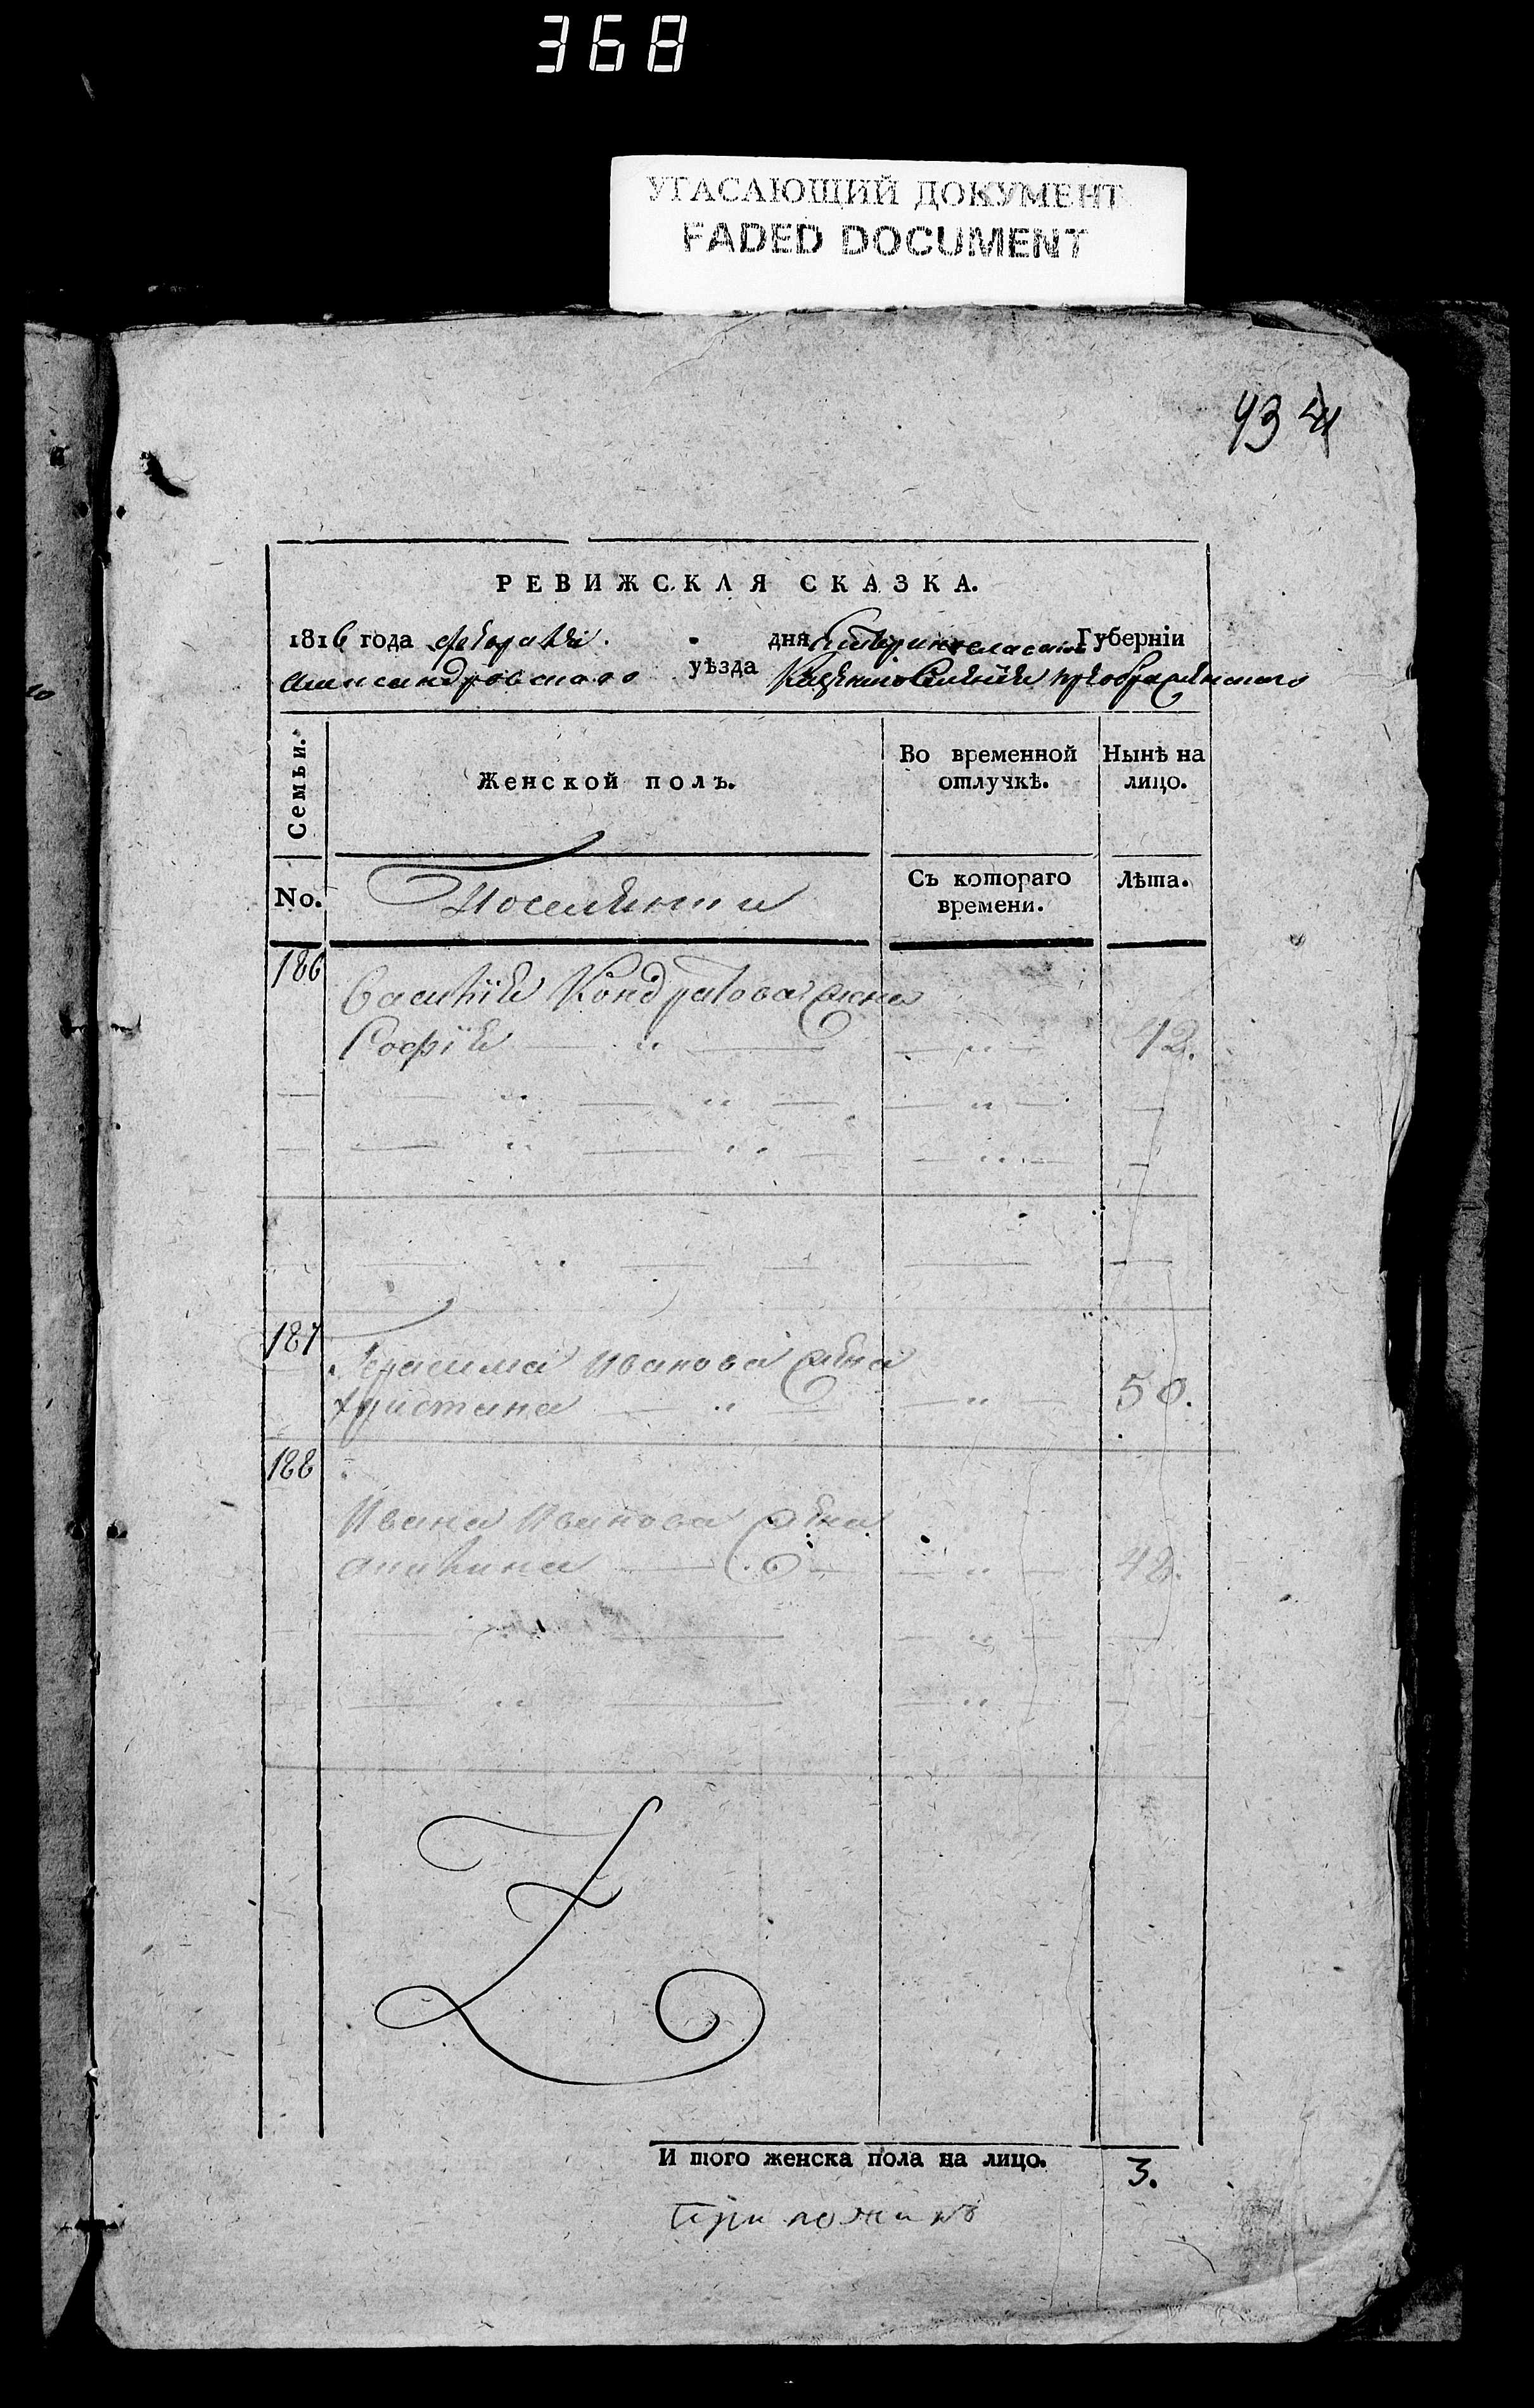 368
УГАСАЮЩИЙ ДОКУМЕНТ
FADED DOCUMENT
43
РЕВИЖСКАЯ СКАЗКА.
1816 года февраля дня Екатеринославской Губерніи
Александровского уѣзда Казенного Селения Преображенского
Семьи.
Женской полъ.
Во временной отлучкѣ.
Нынѣ на лицо.
No.
Поселянъ
Съ котораго времени.
Лѣта.
186
Василия Кондратова жена
Софія 42.
187
Герасима Иванова жена
Христина 50.
188
Ивана Иванова жена
48.
И того женска пола на лицо. 3.